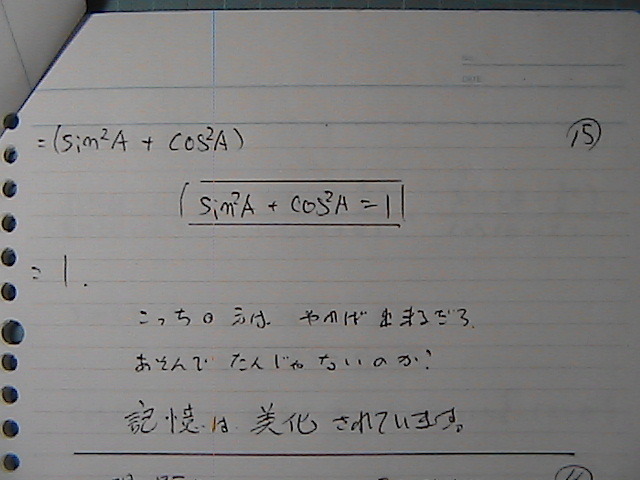 NO.
DATE
= (sin²A + cos²A)
⑮
sin²A + cos²A = 1
= 1.
こっちの方は やれば出来るだろ.
あそんでたんじゃないのか?
記憶は 美化されています。